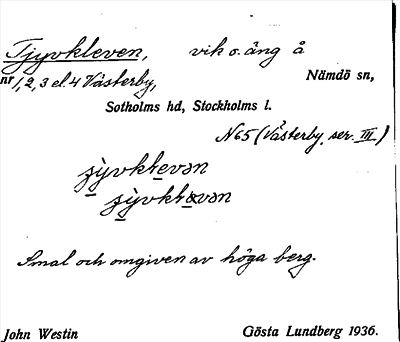 Tjyvkleven, vik o. äng å
nr 1, 2, 3 el. 4 Västerby, Nämdö sn,
Sotholms hd, Stockholms l.
N65 (Västerby, ser. III)
Smal och omgiven av höga berg.
John Westin Gösta Lundberg 1936.